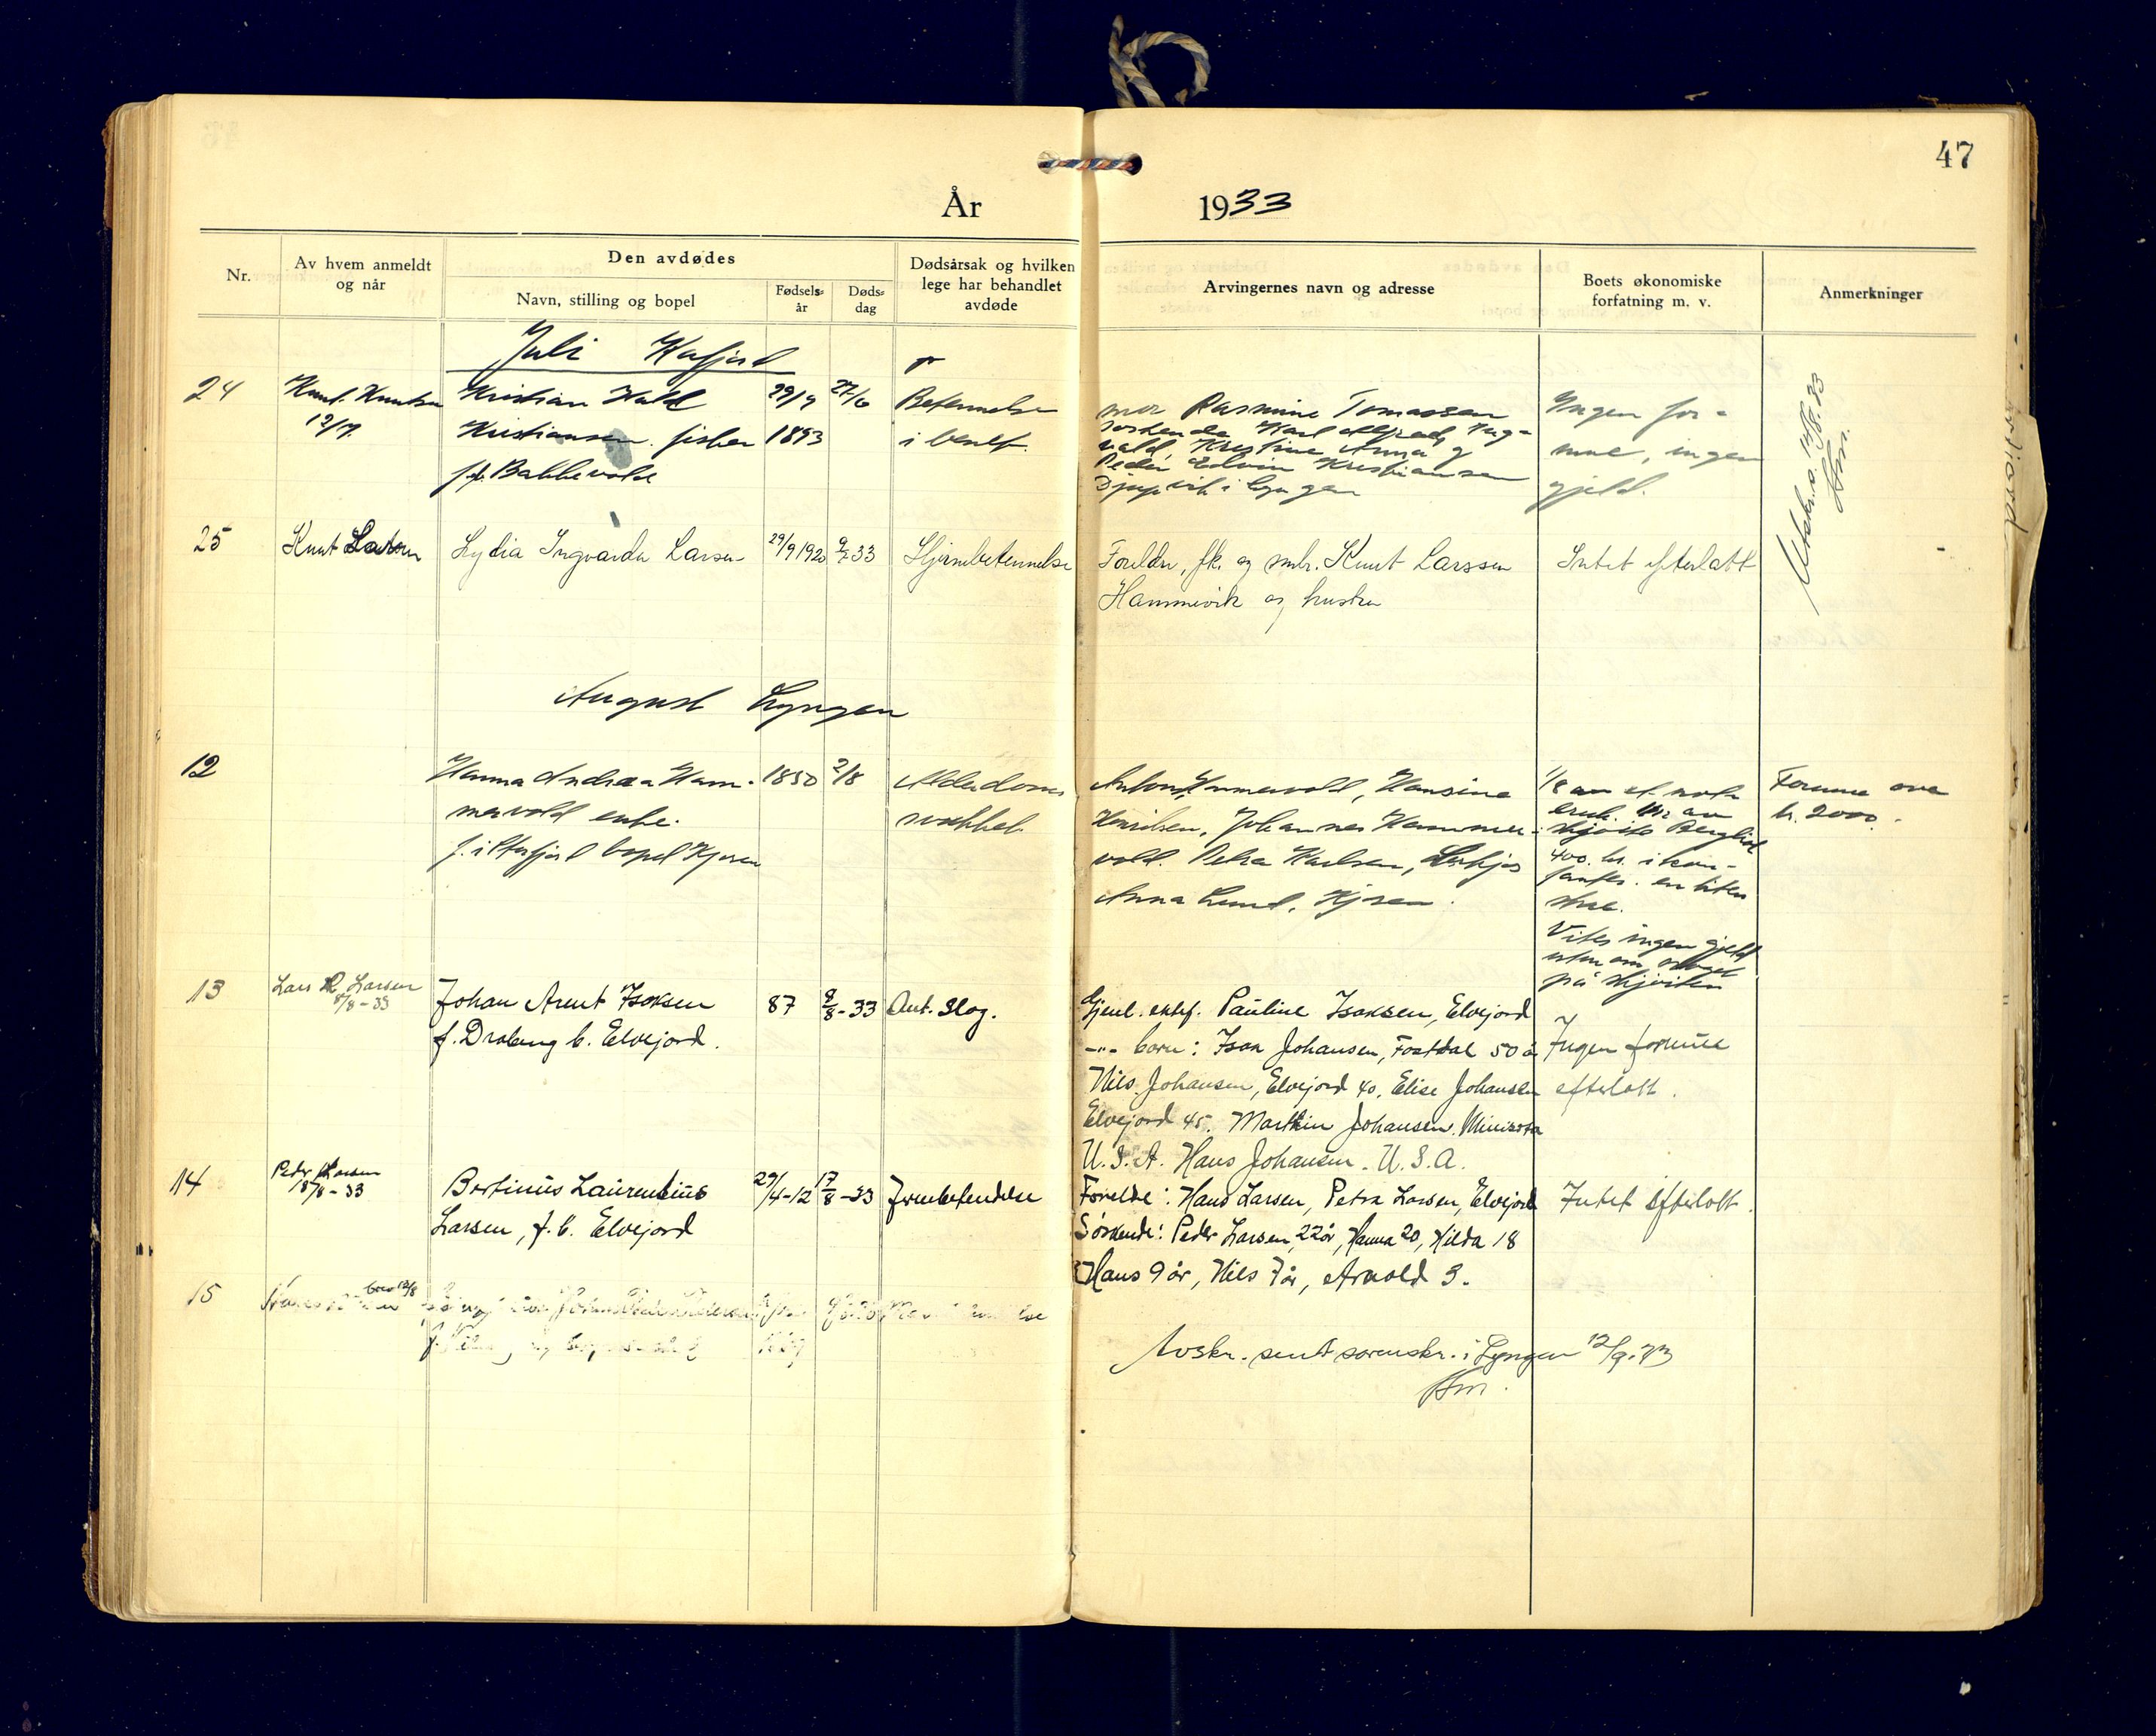 47
År 1933
Nr.
Av hvem anmeldt
og når
Den avdødes
Navn, stilling og bopel
Fødsels-
år
Døds-
dag
Dødsårsak og hvilken
lege har behandlet
avdøde
Arvingernes navn og adresse
Boets økonomiske
forfatning m. v.
Anmerkninger
Juli Kåfjord
24
Knut Knutsen
12/7.
Kristian Hald
Kristiansen. fisker
f.f. Bakkevold
29/9
1893
27/6
Betennelse
i benet.
mor Rasmine Tomassen
søskende Karl Alfred, Ing-
vald, Kristine, Anna og
Peder Edvin Kristiansen
Djupvik i Lyngen
Ingen for-
mue, ingen
gjeld.
Utskr. s. 14/8. 33
25
Knut Larsen
Lydia Ingvarda Larsen
29/9 1920
9/7 33
Hjernebetennelse
Foreldre, fk. og smbr. Knut Larssen
Hammevik og hustru
Intet efterlatt
August Lyngen
12
Hanna Andrea Ham-
mervold enke.
f. i Ulfsfjord bopel Kjosen
1850
2/8
Alderdoms
svakhet
Anton Hammervold, Hansine
Henriksen, Johannes Hammer-
vold. Petra Karlsen,
Anna Lund, Kjosen.
1/8 av et not
bruk.
skjøite Berglid
400. kr. i kon-
tanter. en liten
Vites ingen gjeld
uten om noget
på skjøiten
Formue ova
kr. 2000.
13
Lars R Larsen
8/8-33
Johan Arent Isaksen
f. Draberg b. Elvejord.
87
8/8-33
Ant. Slag.
Gjenl. ektef. Pauline Isaksen, Elvejord
-"- born: Isak Johansen, Fostdal 50 år
Nils Johansen, Elvejord 40. Elise Johansen
Elvejord 45. Marthin Johansen. Minisota
U.S.A. Hans Johansen. U.S.A.
Ingen formue
efterlatt.
14
Peder Larsen
18/8-33
Bertinus Laurentius
Larsen, f. b. Elvejord
29/4-12
17/8-33
Jernebetendelse
Foreldre: Hans Larsen, Petra Larsen, Elvejord
Søskende: Peder Larsen, 22 år, Hanna 20, Hilda 18
Hans 9 år, Nils 7 år, Arnold 3.
Intet efterlatt.
15
Avskr. sent sorenskr. i Lyngen 12/9.33